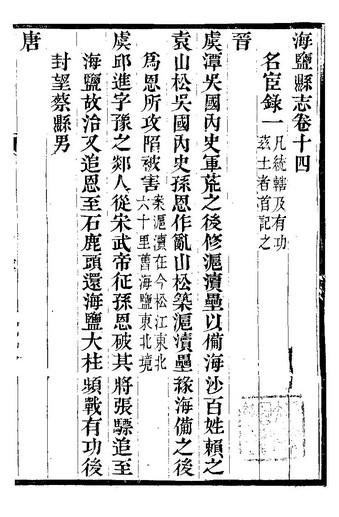 海鹽縣志卷十四
名宦錄一凡統轄及有功茲土者首記之
晉
虞潭吳國內史軍荒之後修滬瀆壘以僃海沙百姓賴之
袁山松吳國內史孫恩作亂山松築滬瀆壘緣海備之後
為恩所攻陷被害案滬瀆在今松江東北六十里舊海鹽東北境
虞邱進字豫之郯人從宋武帝征孫恩破其將張驃追至
海鹽故治又追恩至石鹿頭還海鹽大柱頻戰有功後
封望蔡縣男
唐